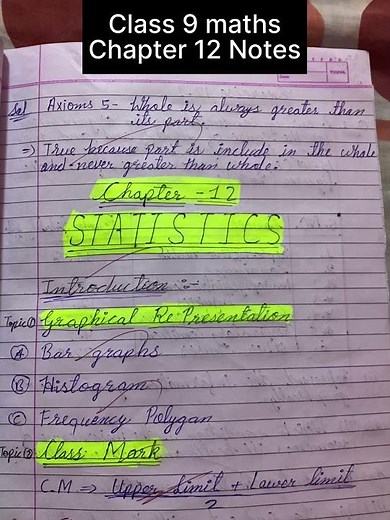 Class 9 maths
Chapter 12 Notes
Sol Axioms 5- Whole is always greater than
its part
⇒) True because part is include in the whole
and never greater than whole.
Chapter -12
STATISTICS
Introduction :-
Topic ① Graphical RePresentation
Ⓐ Bar graphs
Ⓑ Histogram
Ⓒ Frequency Polygan
Topic ② Class Mark
C.M ⇒ Upper Limit + Lower limit
2